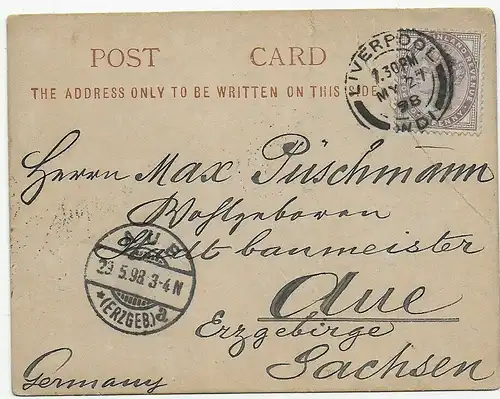 POST CARD
THE ADDRESS ONLY TO BE WRITTEN ON THIS SIDE
LIVERPOOL
7.30PM
MY 27
98
INLAND REVENUE
Herrn Max Püschmann
Wohlgeboren
Stadtbaumeister
Aue
Erzgebirge
Sachsen
Germany
AUE
29.5.98.3-4N
*(ERZGEB.) a